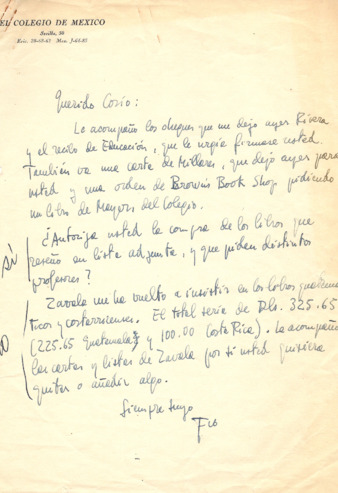 EL COLEGIO DE MEXICO
Sevilla, 30
Eric. 28-65-61 Mex. J-64-85
Querido Cosío:
Le acompaño los cheques que me dejó ayer Rivera
y el recibo de Educación, que le urgía firmase usted.
También va una carta de Millares, que dejó ayer para
usted y una orden de Brown's Book Shop pidiendo
un libro de Mayors del Colegio.
¿Autoriza usted la compra de los libros que
reseño en lista adjunta, y que piden distintos
profesores?
sí
Zavala me ha vuelto a insistir en los libros guatemal
tecos y costarricenses. El total sería de Dls. 325.65
(225.65 Guatemala y 100.00 Costa Rica). Le acompaño
las cartas y listas de Zavala por si usted quisiera
quitar o añadir algo.
Siempre suyo